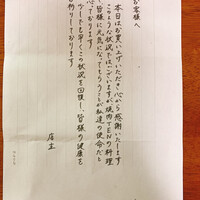 お客様へ
本日はお買い上げいただき心から感謝いたします
このような状況ではございますが、焼肉TENの料理
で皆様に元気になってもらうことが私達の使命だと
心しております
一日でも早くこの状況を回復し、皆様の健康を
お祈りしております
店主